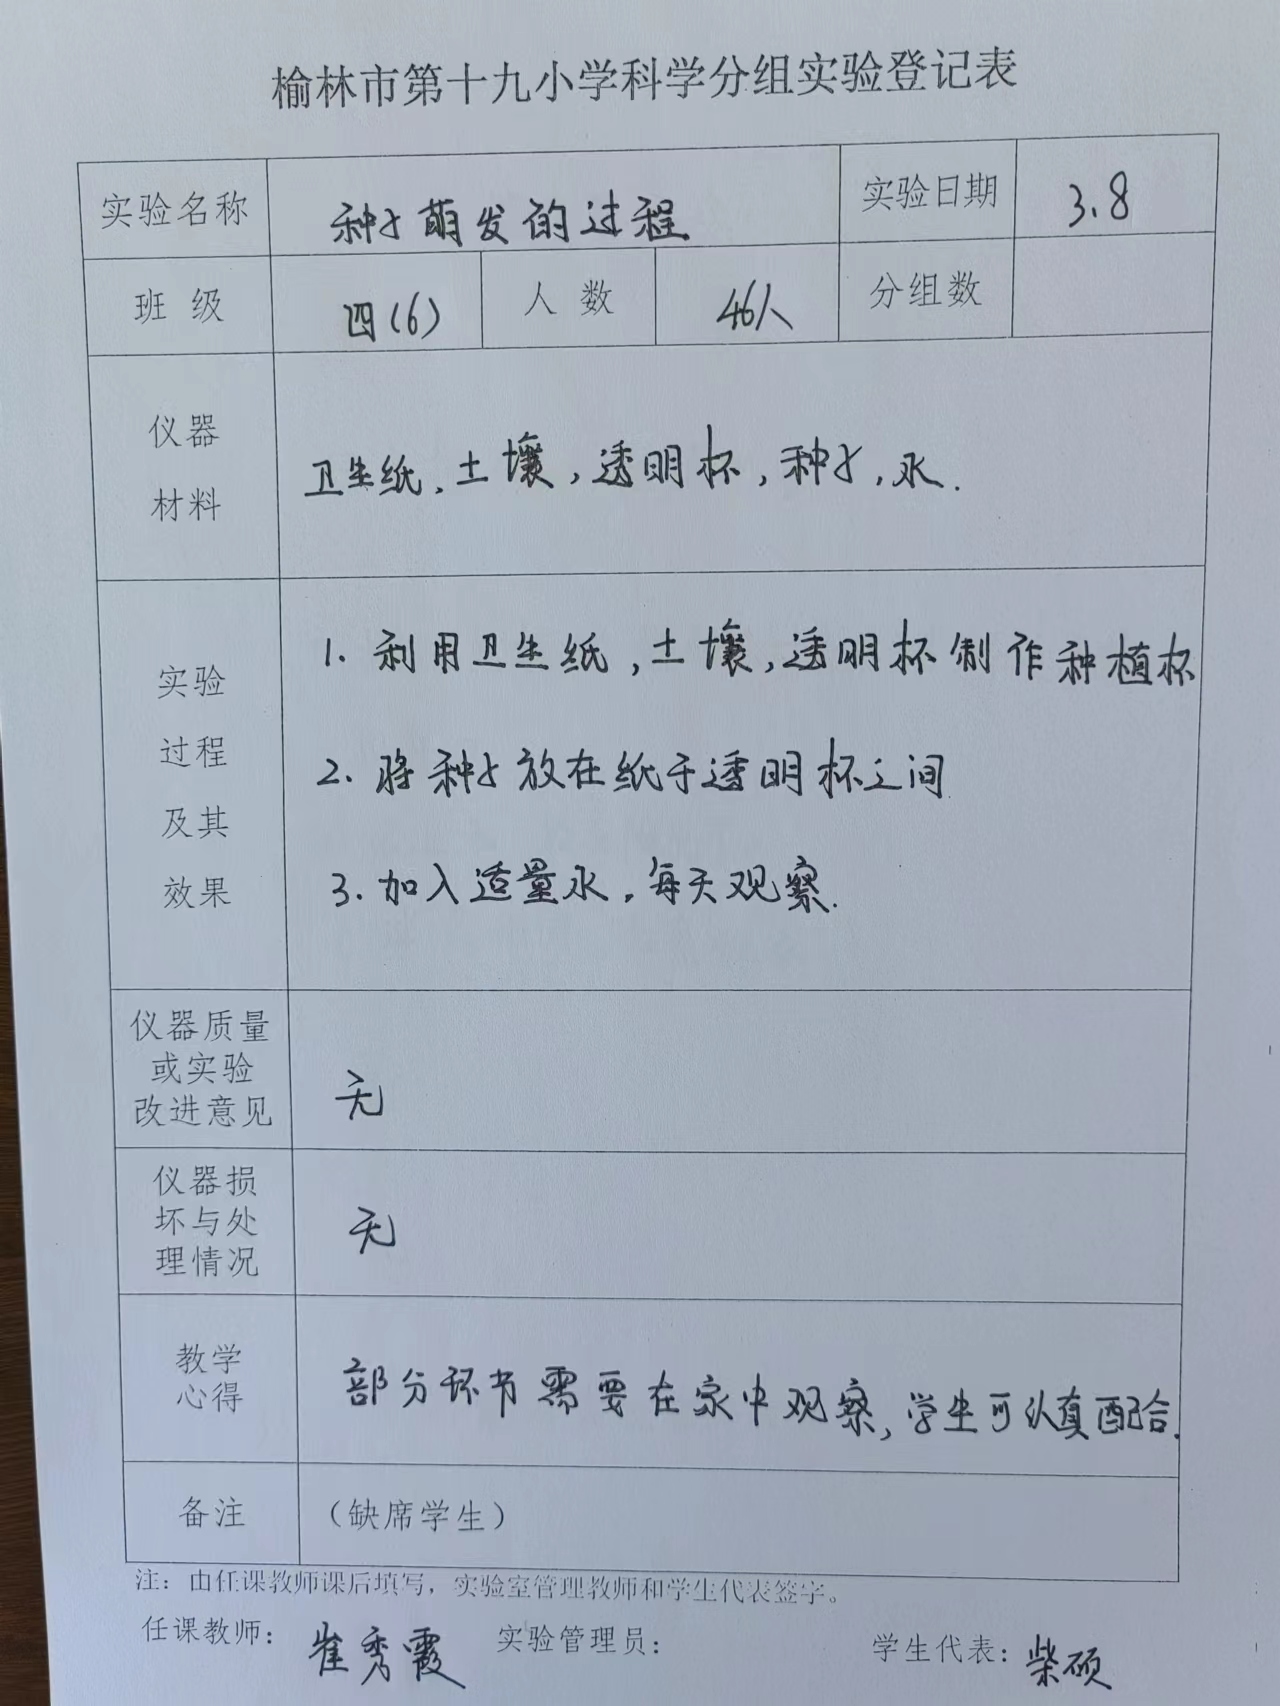 榆林市第十九小学科学分组实验登记表
实验名称 种子萌发的过程 实验日期 3.8
班级 四(6) 人数 46人 分组数
仪器
材料
卫生纸,土壤,透明杯,种子,水.
实验
过程
及其
效果
1. 利用卫生纸,土壤,透明杯制作种植杯
2. 将种子放在纸于透明杯之间
3. 加入适量水,每天观察.
仪器质量
或实验
改进意见
无
仪器损
坏与处
理情况
无
教学
心得
部分环节需要在家中观察,学生可认真配合.
备注 (缺席学生)
注:由任课教师课后填写,实验室管理教师和学生代表签字。
任课教师:崔秀霞 实验管理员: 学生代表:柴硕